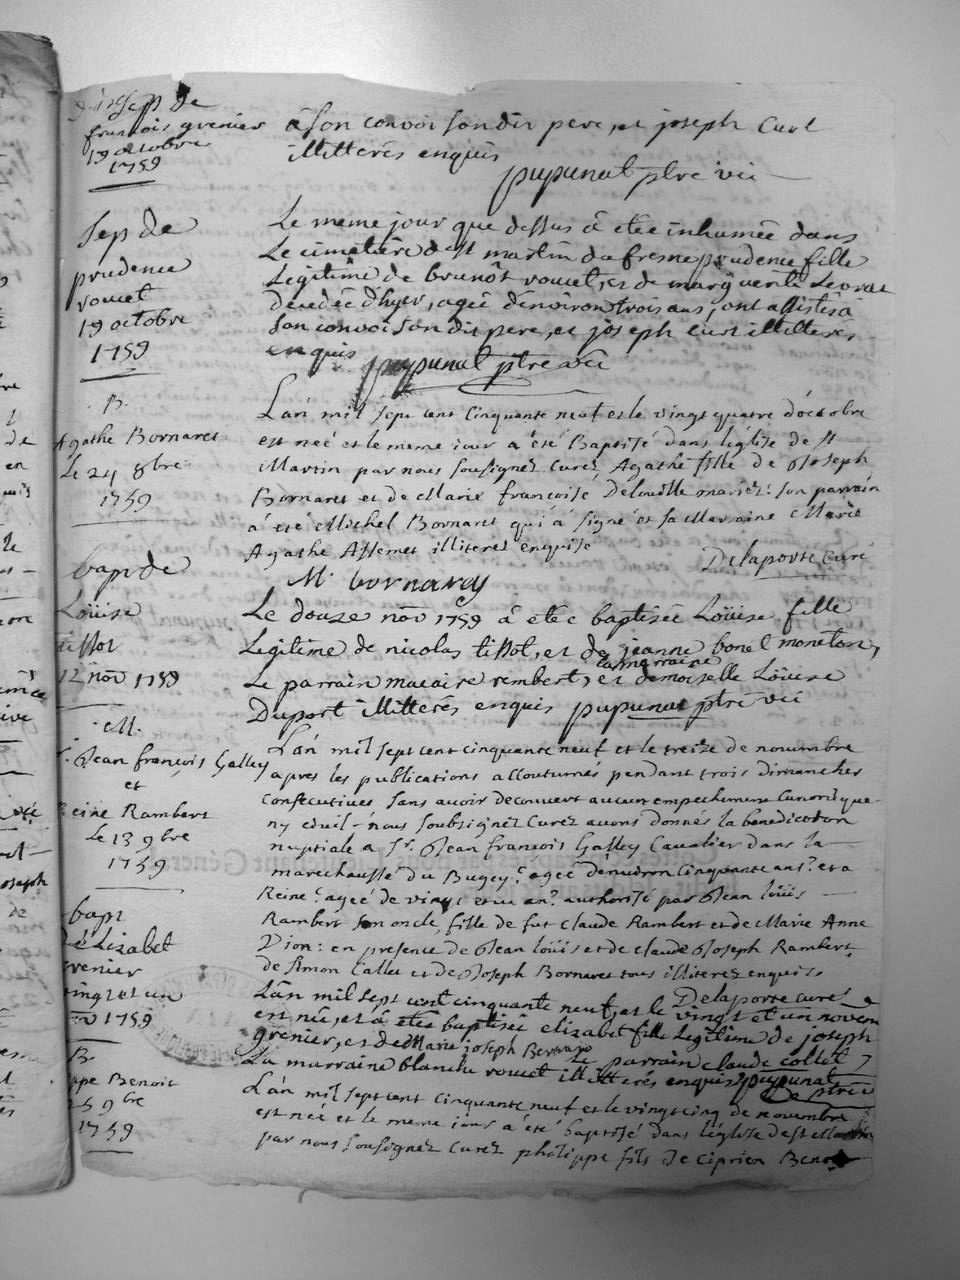 sep de
francois grenier
19 octobre
1759
a son convoi son dit pere, et joseph Curt
illitterés enquis
pupunat ptre vic
sep de
prudence
vouet
19 octobre
1759
Le meme jour que dessus à etée inhumée dans
Le cimetière de st martin du fresne prudence fille
Legitime de brunot vouet, et de marguerite
decedée d'hyer, agée d'enoiron trois ans, ont assistés à
son convoi son dit pere, et joseph curt illitteres
enquis
pupunat ptre vic
B.
Agathe Bornaret
Le 24 8bre
1759
L'an mil sept cent cinquante neuf et le vingt quatre d'octobre
est neé et le meme jour a été Baptisé dans l'église de St
Martin par nous soussignez Curez Agathe fille de Joseph
Bornaret et de Marie françoise Delouille mariez: son parrain
a été Michel Bornaret qui a signé et sa Marraine Marie
Agathe Assemet illiteres enquise
Delaporte curé
M. bornaray
bap de
Loüise
tissot
12 nov 1759
Le douze nov 1759 à etée baptisée Loüise fille
Legitime de nicolas tissot, et de jeanne bonel
Le parrain macaire rembert, et la marraine demoiselle Loüise
Duport illitterés enquis pupunat ptre vic
M.
Sr. Jean françois Galley
et
Reine Rambert
Le 13 9bre
1759
L'an mil sept cent cinquante neuf et le treize de nouembre
apres les publications accoutumés pendant trois dimanches
consecutives sans auoir decouvert aucun empechement canonique
ny ciuil, nous soubsignez Curez auons donnés la benediction
nuptiale a Sr. Jean francois Galley Caualier dans la
marechaussé du Bugey agée d'enuiron cinquante ans et a
Reine agée de vingt et un an authorisé par Jean Loüis
Rambert son oncle, fille de fut Claude Rambert et de Marie Anne
Dion: en presence de Jean Loüis et de claude Joseph Rambert
de Simon Callet et de Joseph Bornaret tous illiterez enquis
Delaporte curé
bapt
de Lizabet
grenier
vingt et un
nov 1759
L'an mil sept cent cinquante neuf, et le vingt et un novem
est née, et à etée baptisée elizabet fille Legitime de joseph
grenier, et de Marie joseph Le parrain claude collet
La marraine blanche vouet illitterés enquis pupunat
ptre
B.
ppe Benoit
25 9bre
1759
L'an mil sept cent cinquante neuf et le vingt cinq de nouembre
est neé et le meme jour a été baptisé dans l'église de st Martin
par nous soussignez Curez philippe fils de Ciprien Benoit